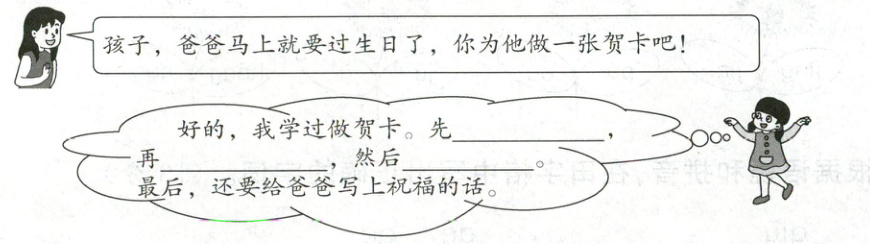 孩子，爸爸马上就要过生日了，你为他做一张贺卡吧！
好的，我学过做贺卡。先____________，
再____________，然后____________。
最后，还要给爸爸写上祝福的话。